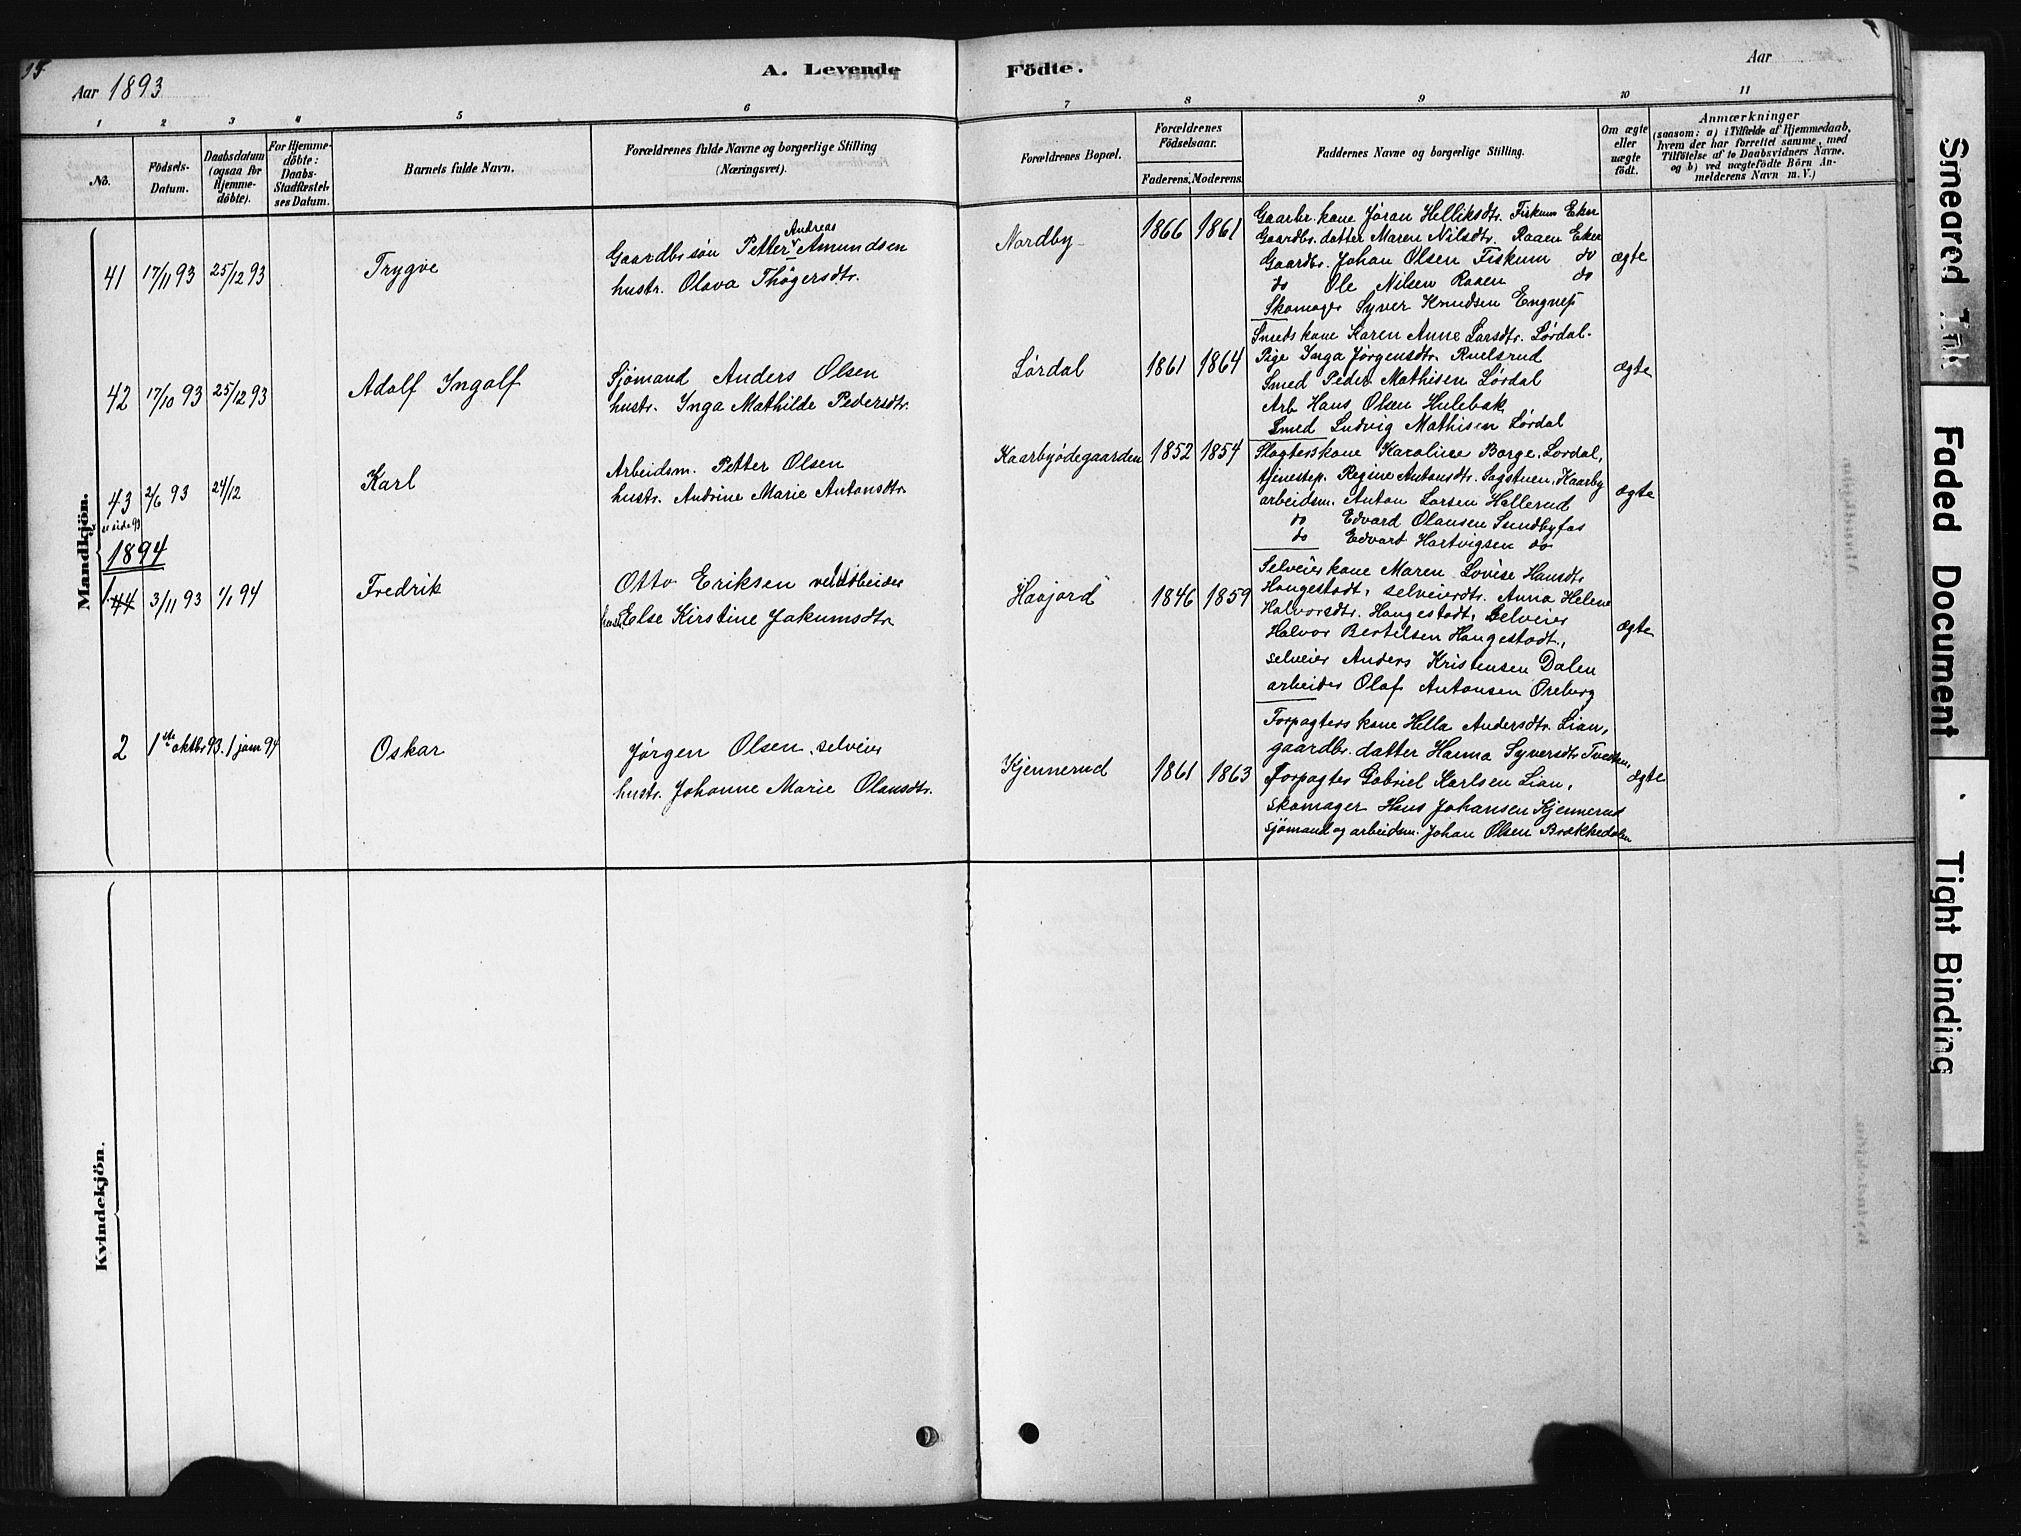 95
Aar 1893
A. Levende
Födte.
Aar
1
2
3
4
5
6
7
8
9
10
11
No.
Födsels-
Datum.
Daabsdatum
(ogsaa for
Hjemme-
döbte).
For Hjemme-
döbte:
Daabs-
Stadfæstel-
ses Datum.
Barnets fulde Navn.
Forældrenes fulde Navne og borgerlige Stilling
(Næringsvei).
Forældrenes Bopæl.
Forældrenes
Födselsaar.
Faderens.
Moderens.
Faddernes Navne og borgerlige Stilling.
Om ægte
eller
uægte
födt.
Anmærkninger
(saasom: a) i Tilfælde af Hjemmedaab,
hvem der har forrettet samme, med
Tilföielse af to Daabsvidners Navne,
og b) ved uægtefödte Börn An-
melderens Navn m. V.)
Mandkjön.
41
17/11 93
25/12 93
Trygve
Andreas
Gaardbr.søn Petter Amundsen
hustr. Olava Thögersdtr.
Nordby
1866
1861
Gaarbr. kone Jøran Helliksdtr. Fiskum Eker
Gaardbr. datter Maren Nilsdtr. Raaen Eker
Gaardbr. Johan Olsen Fiskum do
do Ole Nilsen Raaen do
Skomager Syver Knudsen
ægte
42
17/10 93
25/12 93
Adolf Ingolf
Sjömand Anders Olsen
hustr. Inga Mathilde Pedersdtr.
Lørdal
1861
1864
Smeds kone Karen Anne Larsdtr. Lørdal.
Pige Inga Jørgensdtr. Ruelsrud
Smed Peder Mathisen Lørdal
Arb Hans Olsen Hulebak
Smed Ludvig Mathisen Lørdal
ægte
43
2/6 93
24/12
Karl
Arbeidsm. Petter Olsen
hustr. Andrine Marie Antonsdtr.
Kaarbyødegaarden
1852
1854
Slagterskone Karoline Borge, Lørdal,
tjenestep. Regine Antonsdtr. Sagstuen, Kaarby
arbeidsm. Anton Larsen Hallerud
do Edvard Olausen Sundbyfos
do Edvart Hartvigsen do
ægte
se side 93
1894
1.
44
3/11 93
1/1 94
Fredrik
Otto Eriksen veiarbeider
hustr. Else Kirstine Jakumsdtr
Haajord
1846
1859
Selveierkone Maren Lovise Hansdtr
Hangestadt, selveierdtr. Anna Helene
Halvorsdtr. Hangestadt, Selveier
Halvor Bertelsen Hangestadt,
selveier Anders Kristensen Dalen
arbeider Olaf Antonsen Oreberg
ægte
2
1ste oktbr 93.
1 janr 94
Oskar
Jørgen Olsen, selveier
hustr. Johanne Marie Olausdtr.
Kjennerud
1861
1863
Forpagters kone Hella Andersdtr. Lian,
gaardbr. datter Hanna Syversdtr
Forpagter Gabriel Karlsen Lian,
skomager Hans Johansen Kjennerud
sjömand og arbeidsm. Johan Olsen Brækkedalen
ægte
Kvindekjön.
Smeared Ink
Faded Document
Tight Binding